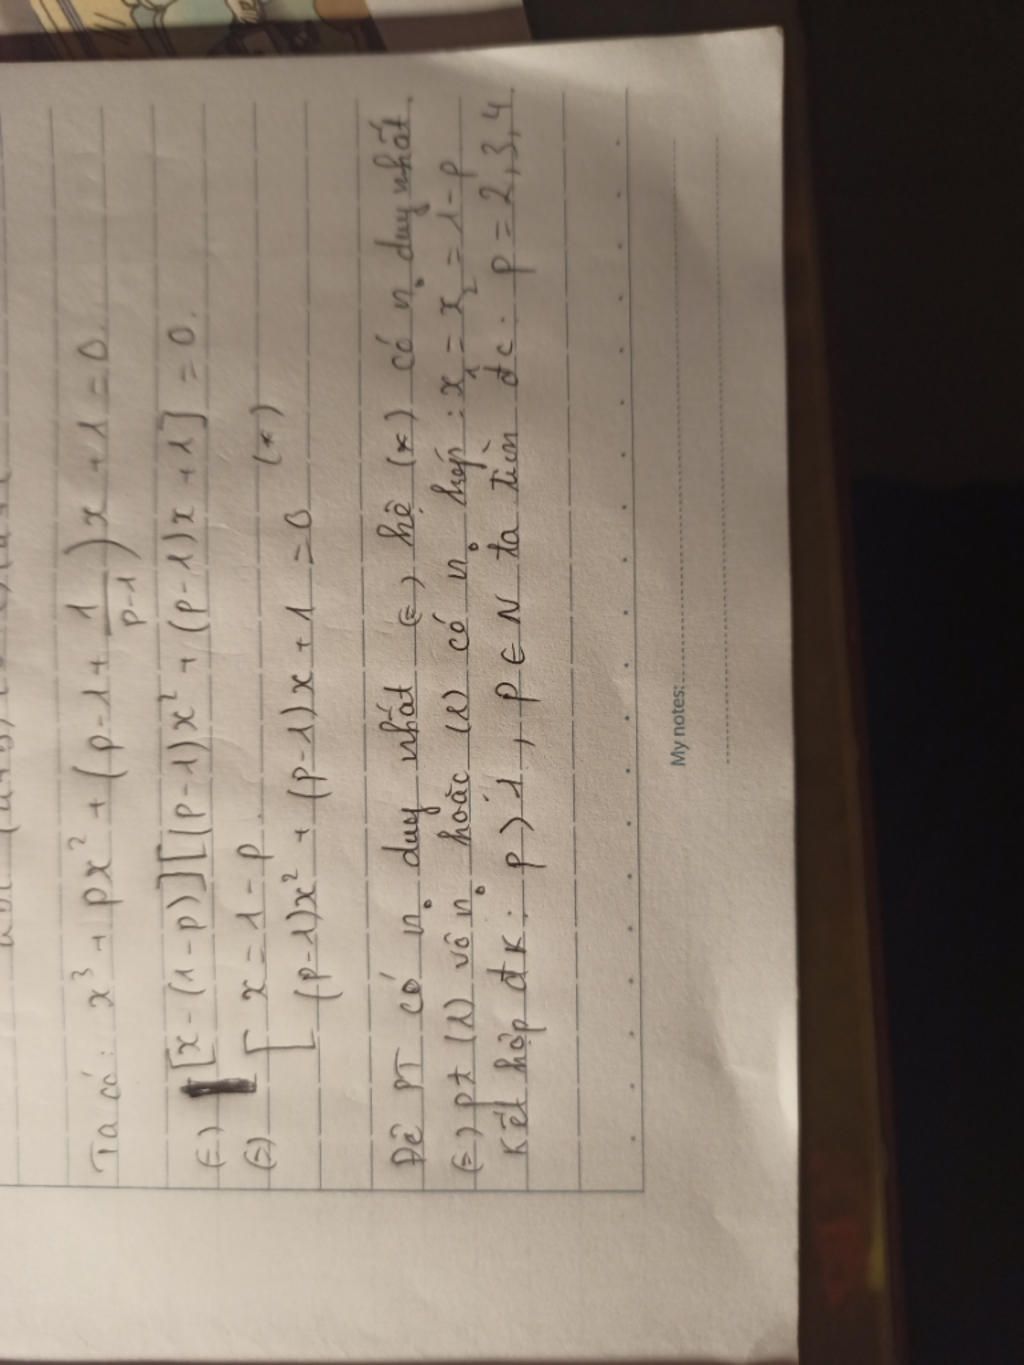 Ta có: x³ + px² + (p-1+ 1/(p-1))x + 1 = 0.
(=) [x-(1-p)][(p-1)x² + (p-1)x + 1] = 0.
(=) [ x = 1-p
(p-1)x² + (p-1)x + 1 = 0 (*)
Để PT có n₀ duy nhất (=) hệ (*) có n₀ duy nhất.
(=) pt (1) vô n₀ hoặc (1) có n₀ kép: x₁ = x₂ = 1-p
Kết hợp đk: p > 1, p ∈ N ta tìm đc: p = 2,3,4.
My notes: